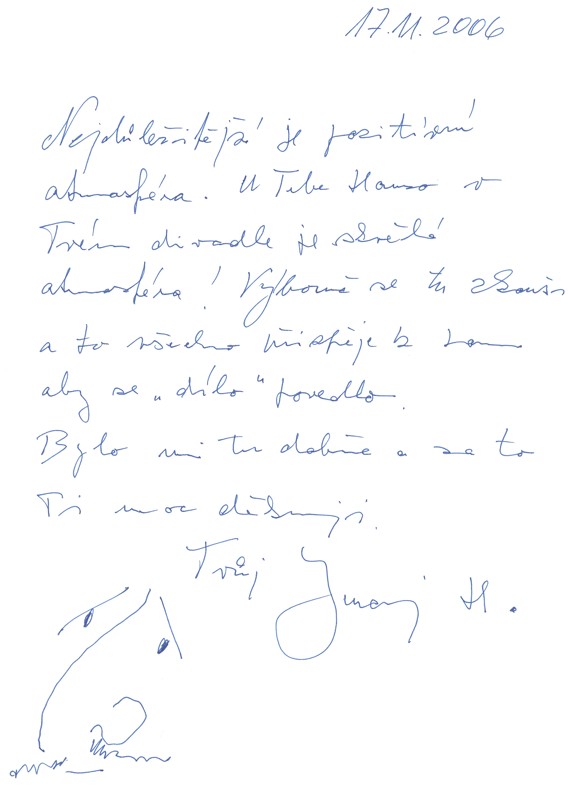 17.11.2006
Nejdůležitější je pozitivní
atmosféra. U Tebe Hanso v
Tvém divadle je skvělá
atmosféra! Výborně se tu zkouší
a to všechno přispěje k tomu
aby se „dílo" povedlo.
Bylo mi tu dobře a za to
Ti moc děkuji.
Tvůj Juraj H.